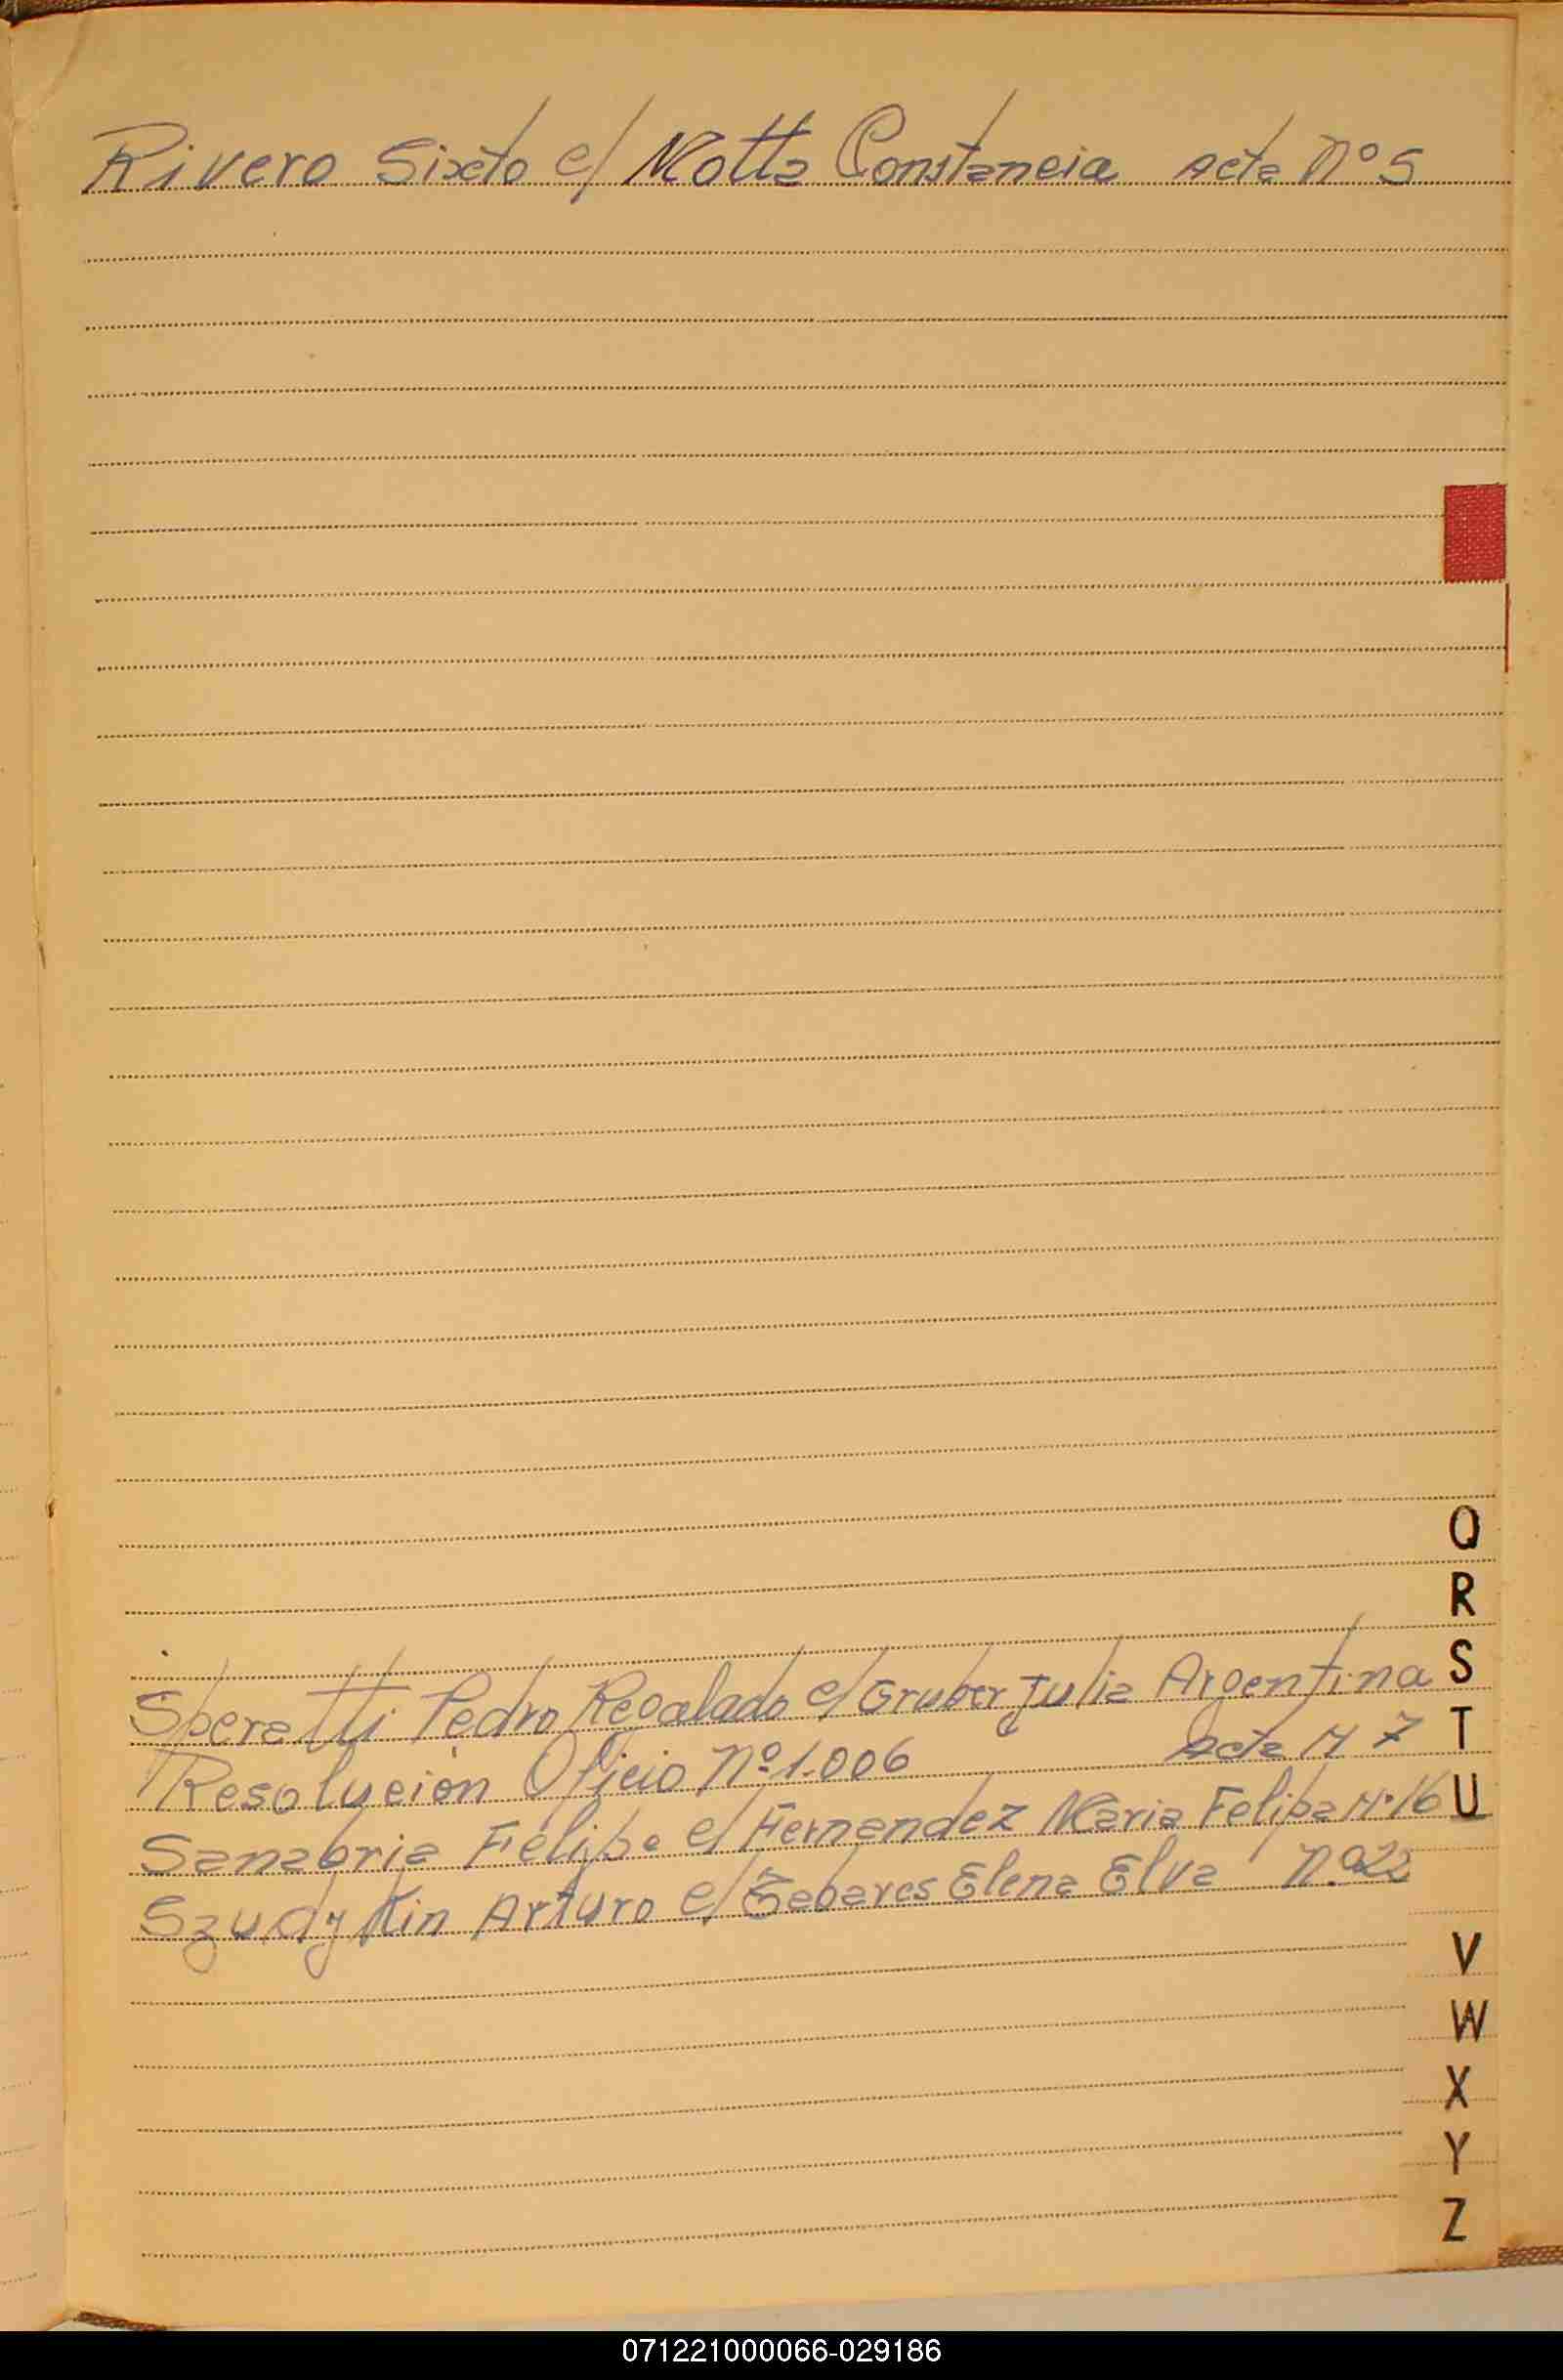 Rivero Sixto c/ Motta Constancia Acta Nº 5
Q
R
S
Speratti Pedro Regalado c/ Gruber Julia Argentina
T
Resolución Oficio Nº 1.006 Acta Nº 7
U
Sanabria Felipe c/ Fernandez Maria Felipa Nº 16
Szudy Kin Arturo c/ Elena Elva Nº 22
V
W
X
Y
Z
071221000066-029186